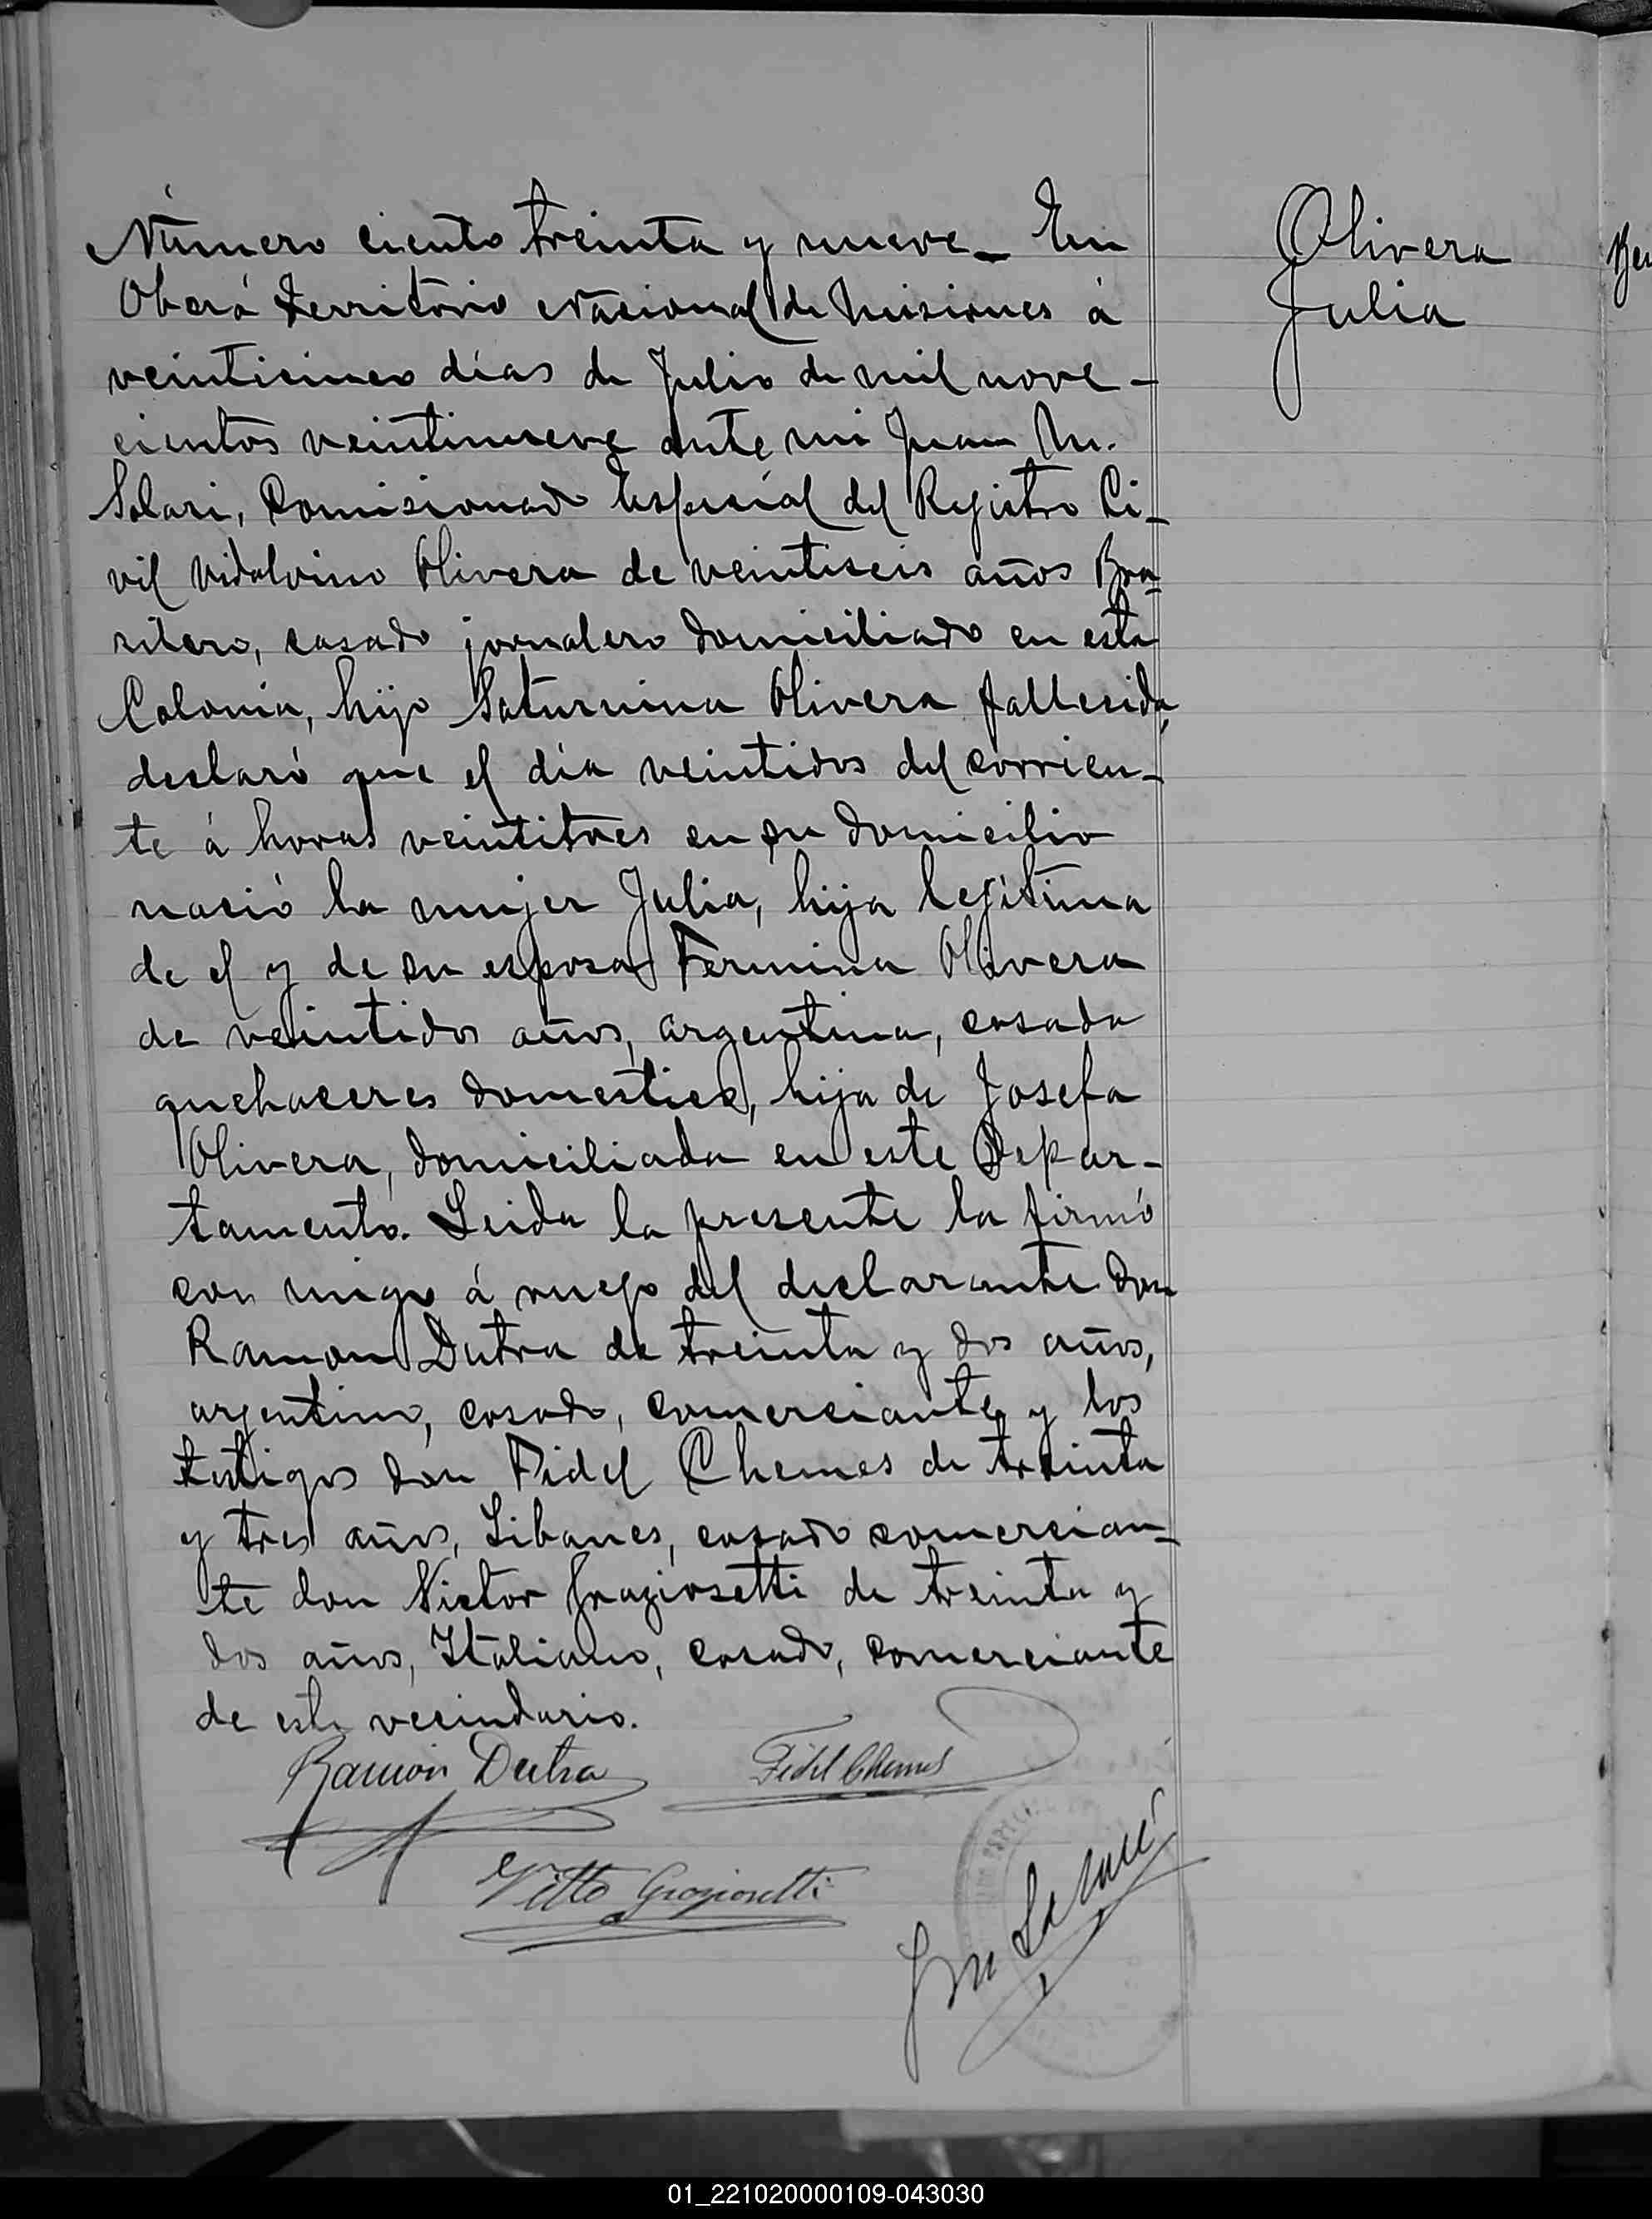 Número ciento treinta y nueve_ En
Oberá Territorio Nacional de Misiones á
veinticinco días de Julio de mil nove-
cientos veintinueve ante mi Juan M.
Solari, Comisionado Especial del Registro Ci-
vil Vidalvino Olivera de veintiseis años Bra-
silero, casado jornalero domiciliado en esta
Colonia, hijo Saturnina Olivera fallecida,
declaró que el día veintidos del corrien-
te á horas veintitres en su domicilio
nació la mujer Julia, hija legítima
de el y de su esposa Fermina Olivera
de veintidos años, argentina, casada
quehaceres domestico, hija de Josefa
Olivera, domiciliada en este Depar-
tamento. Leida la presente la firmó
con migo á ruego del declarante don
Ramon Dutra de treinta y dos años,
argentino, casado, comerciante y los
testigos don Fidel Chemes de treinta
y tres años, Libanes, casado comercian-
te don Victor Graziosetti de treinta y
dos años, Italiano, casado, comerciante
de este vecindario.
Ramón Dutra Fidel Chemes
Vitto Graziosetti
Olivera
Julia
01_221020000109-043030